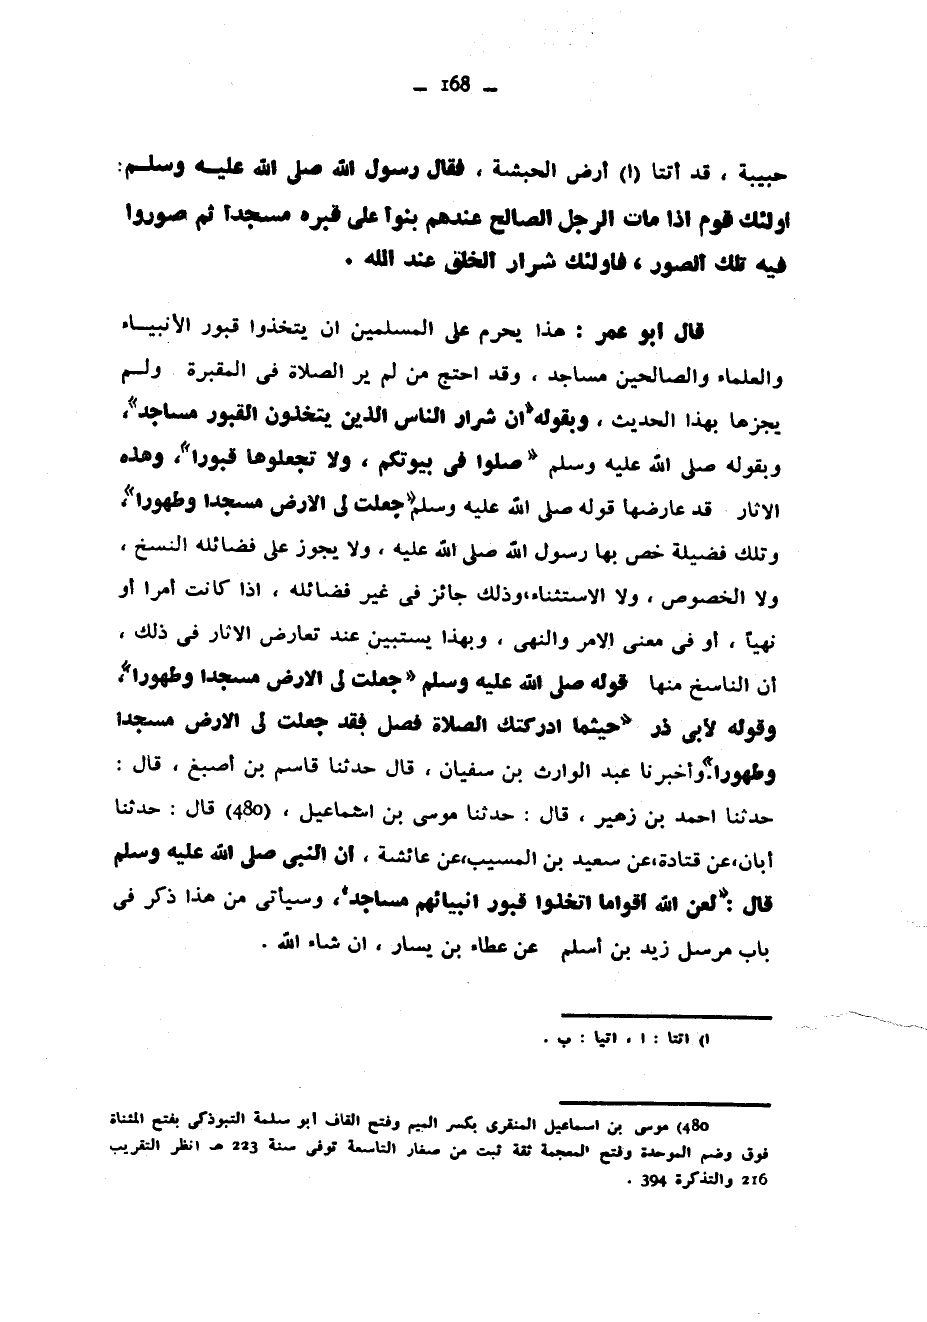 — 168 —
حبيبة ، قد أتتا (ا) أرض الحبشة ، فقال رسول الله صلى الله عليه وسلم:
اولئك قوم اذا مات الرجل الصالح عندهم بنوا على قبره مسجدا ثم صوروا
فيه تلك الصور ، فاولئك شرار الخلق عند الله .
قال ابو عمر : هذا يحرم على المسلمين ان يتخذوا قبور الأنبياء
والعلماء والصالحين مساجد ، وقد احتج من لم ير الصلاة فى المقبرة ولم
يجزها بهذا الحديث ، وبقوله «ان شرار الناس الذين يتخذون القبور مساجد»،
وبقوله صلى الله عليه وسلم « صلوا فى بيوتكم ، ولا تجعلوها قبورا»، وهذه
الاثار قد عارضها قوله صلى الله عليه وسلم «جعلت لى الارض مسجدا وطهورا»،
وتلك فضيلة خص بها رسول الله صلى الله عليه ، ولا يجوز على فضائله النسخ ،
ولا الخصوص ، ولا الاستثناء،وذلك جائز فى غير فضائله ، اذا كانت أمرا أو
نهياً ، أو فى معنى الامر والنهى ، وبهذا يستبين عند تعارض الاثار فى ذلك ،
أن الناسخ منها قوله صلى الله عليه وسلم «جعلت لى الارض مسجدا وطهورا»،
وقوله لأبى ذر «حيثما ادركتك الصلاة فصل فقد جعلت لى الارض مسجدا
وطهورا».وأخبرنا عبد الوارث بن سفيان ، قال حدثنا قاسم بن أصبغ ، قال :
حدثنا احمد بن زهير ، قال : حدثنا موسى بن اسماعيل ، (480) قال : حدثنا
أبان،عن قتادة،عن سعيد بن المسيب،عن عائشة ، أن النبى صلى الله عليه وسلم
قال :«لعن الله أقواما اتخلوا قبور انبيائهم مساجد»، وسيأتى من هذا ذكر فى
باب مرسل زيد بن أسلم عن عطاء بن يسار ، ان شاء الله .
ا) اتتا : ا ، اتيا : ب .
480) موسى بن اسماعيل المنقرى بكسر الميم وفتح القاف أبو سلمة التبوذكى بفتح المثناة
فوق وضم الموحدة وفتح المعجمة ثقة ثبت من صفار التاسعة توفى سنة 223 هـ انظر التقريب
216 والتذكرة 394 .